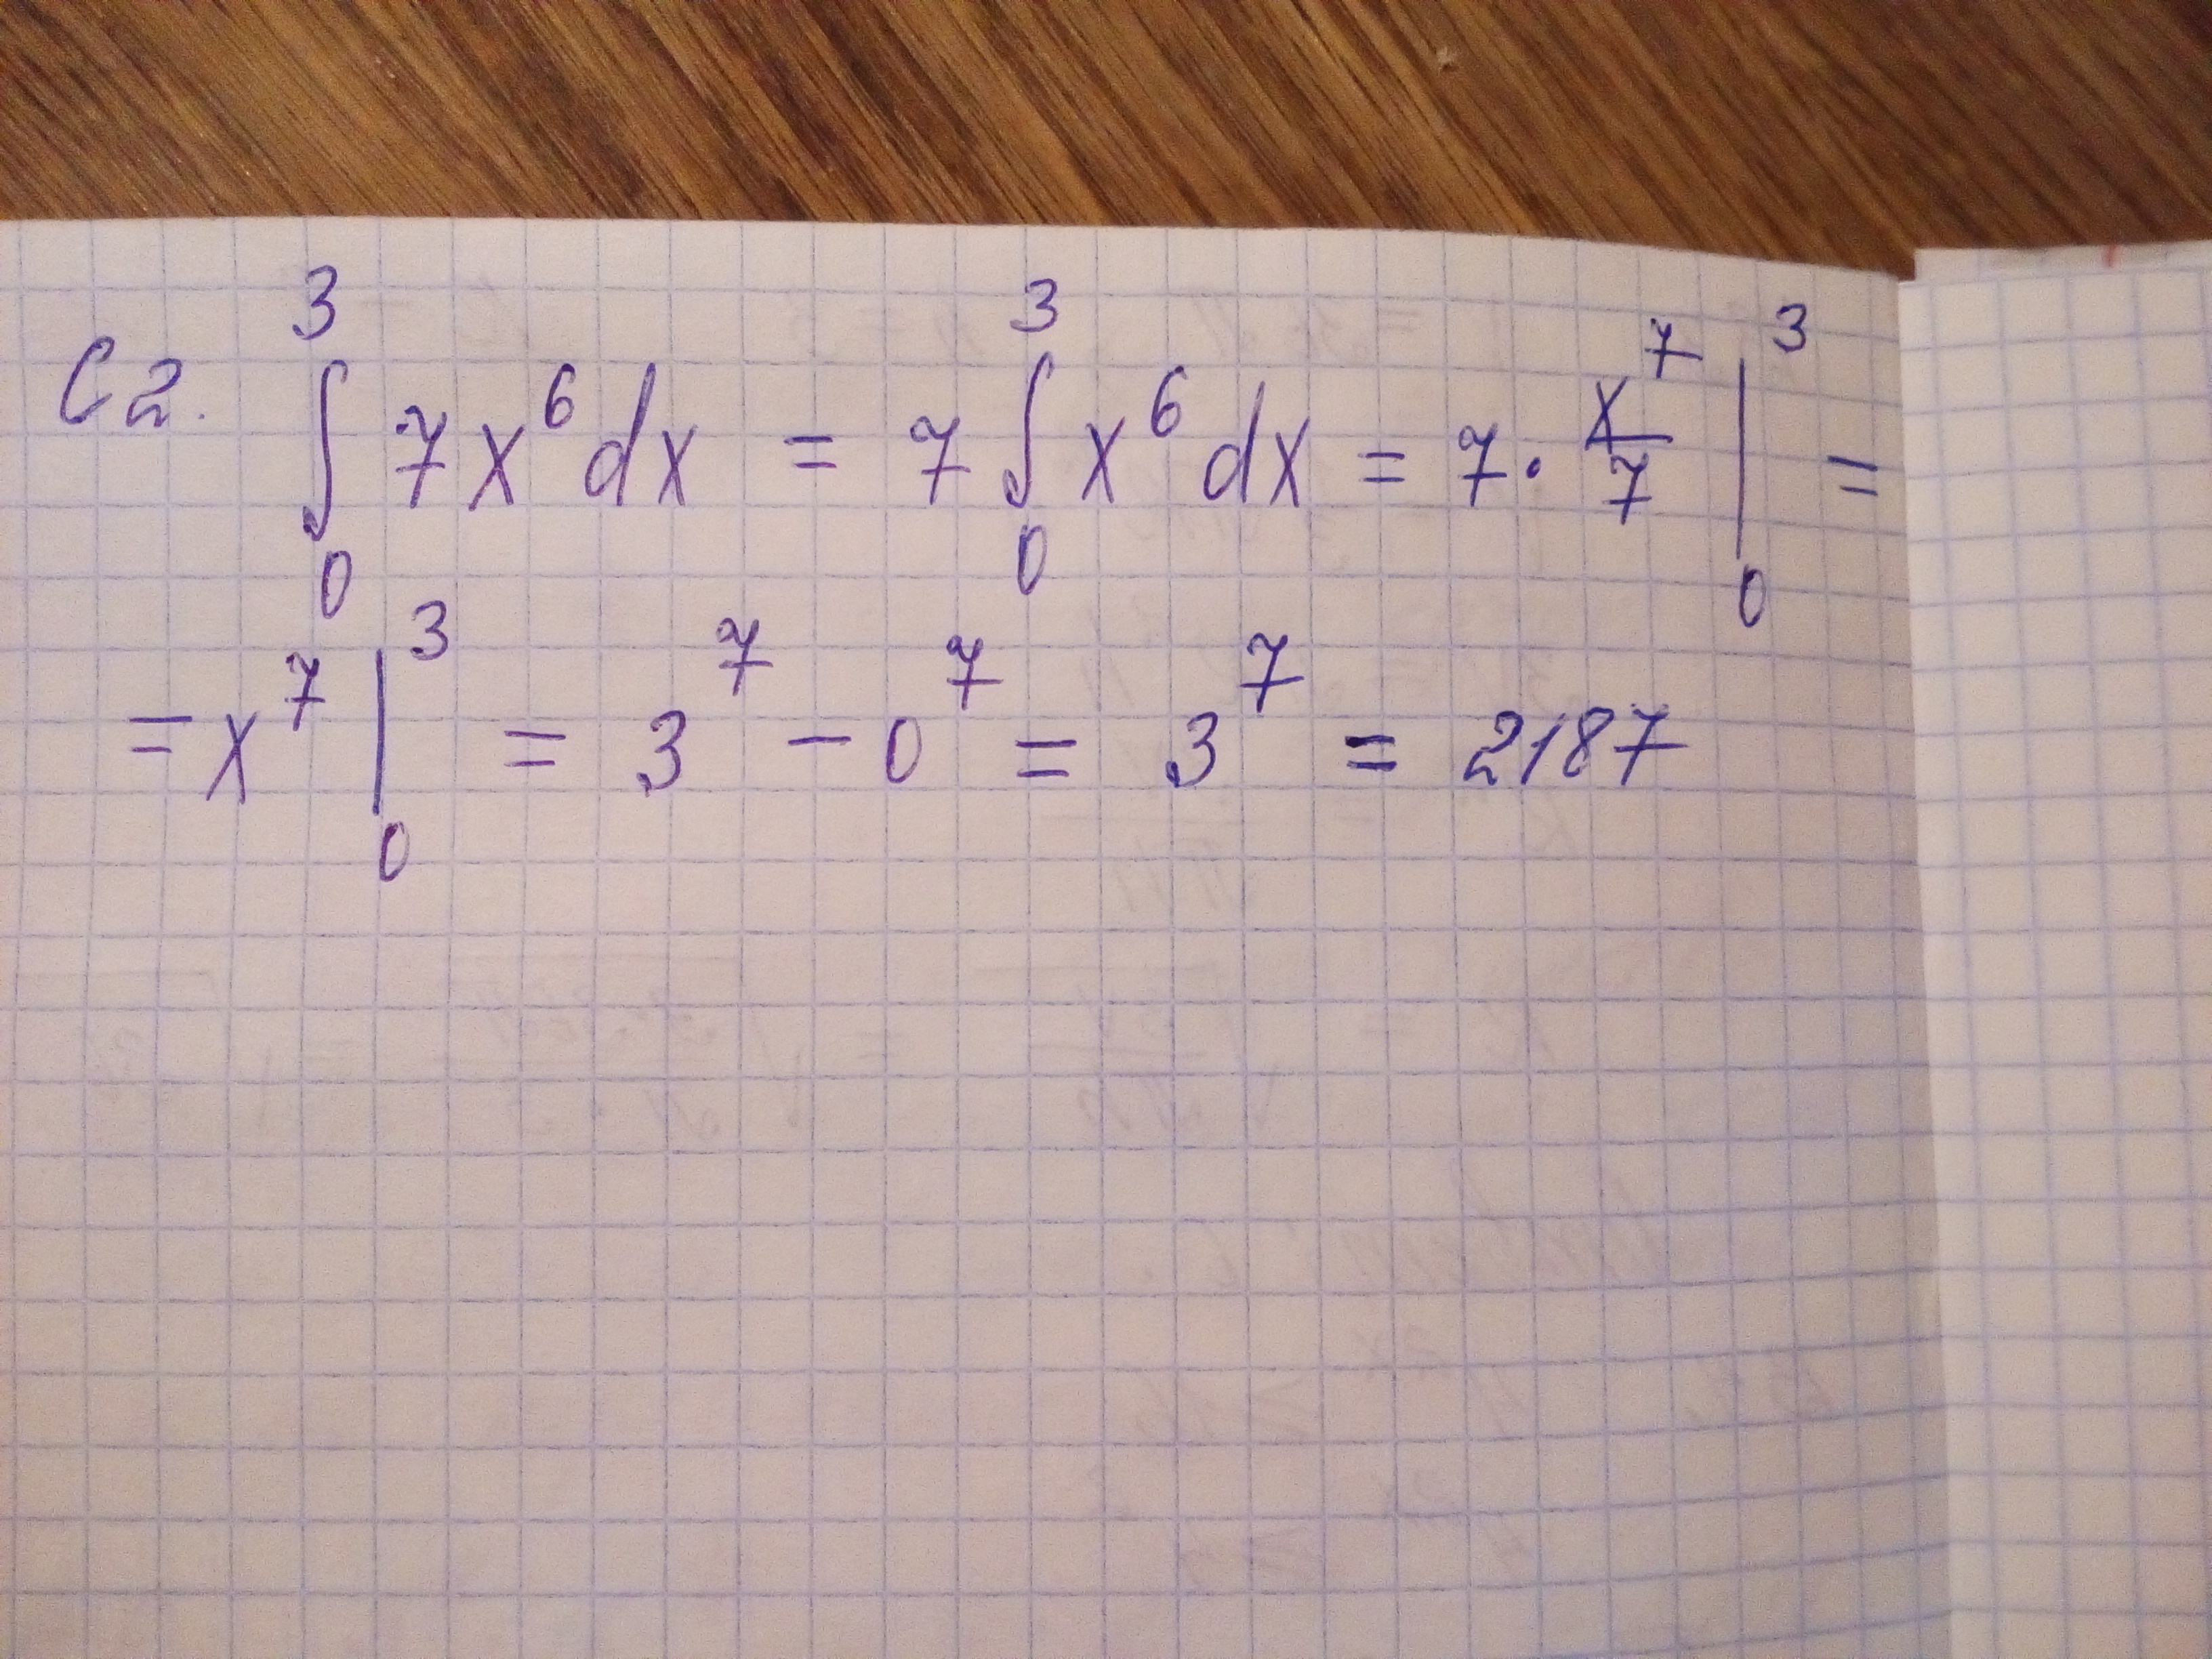 C2. ∫₀³ 7x⁶dx = 7∫₀³ x⁶dx = 7·x⁷/7 |₀³ =
= x⁷ |₀³ = 3⁷ − 0⁷ = 3⁷ = 2187